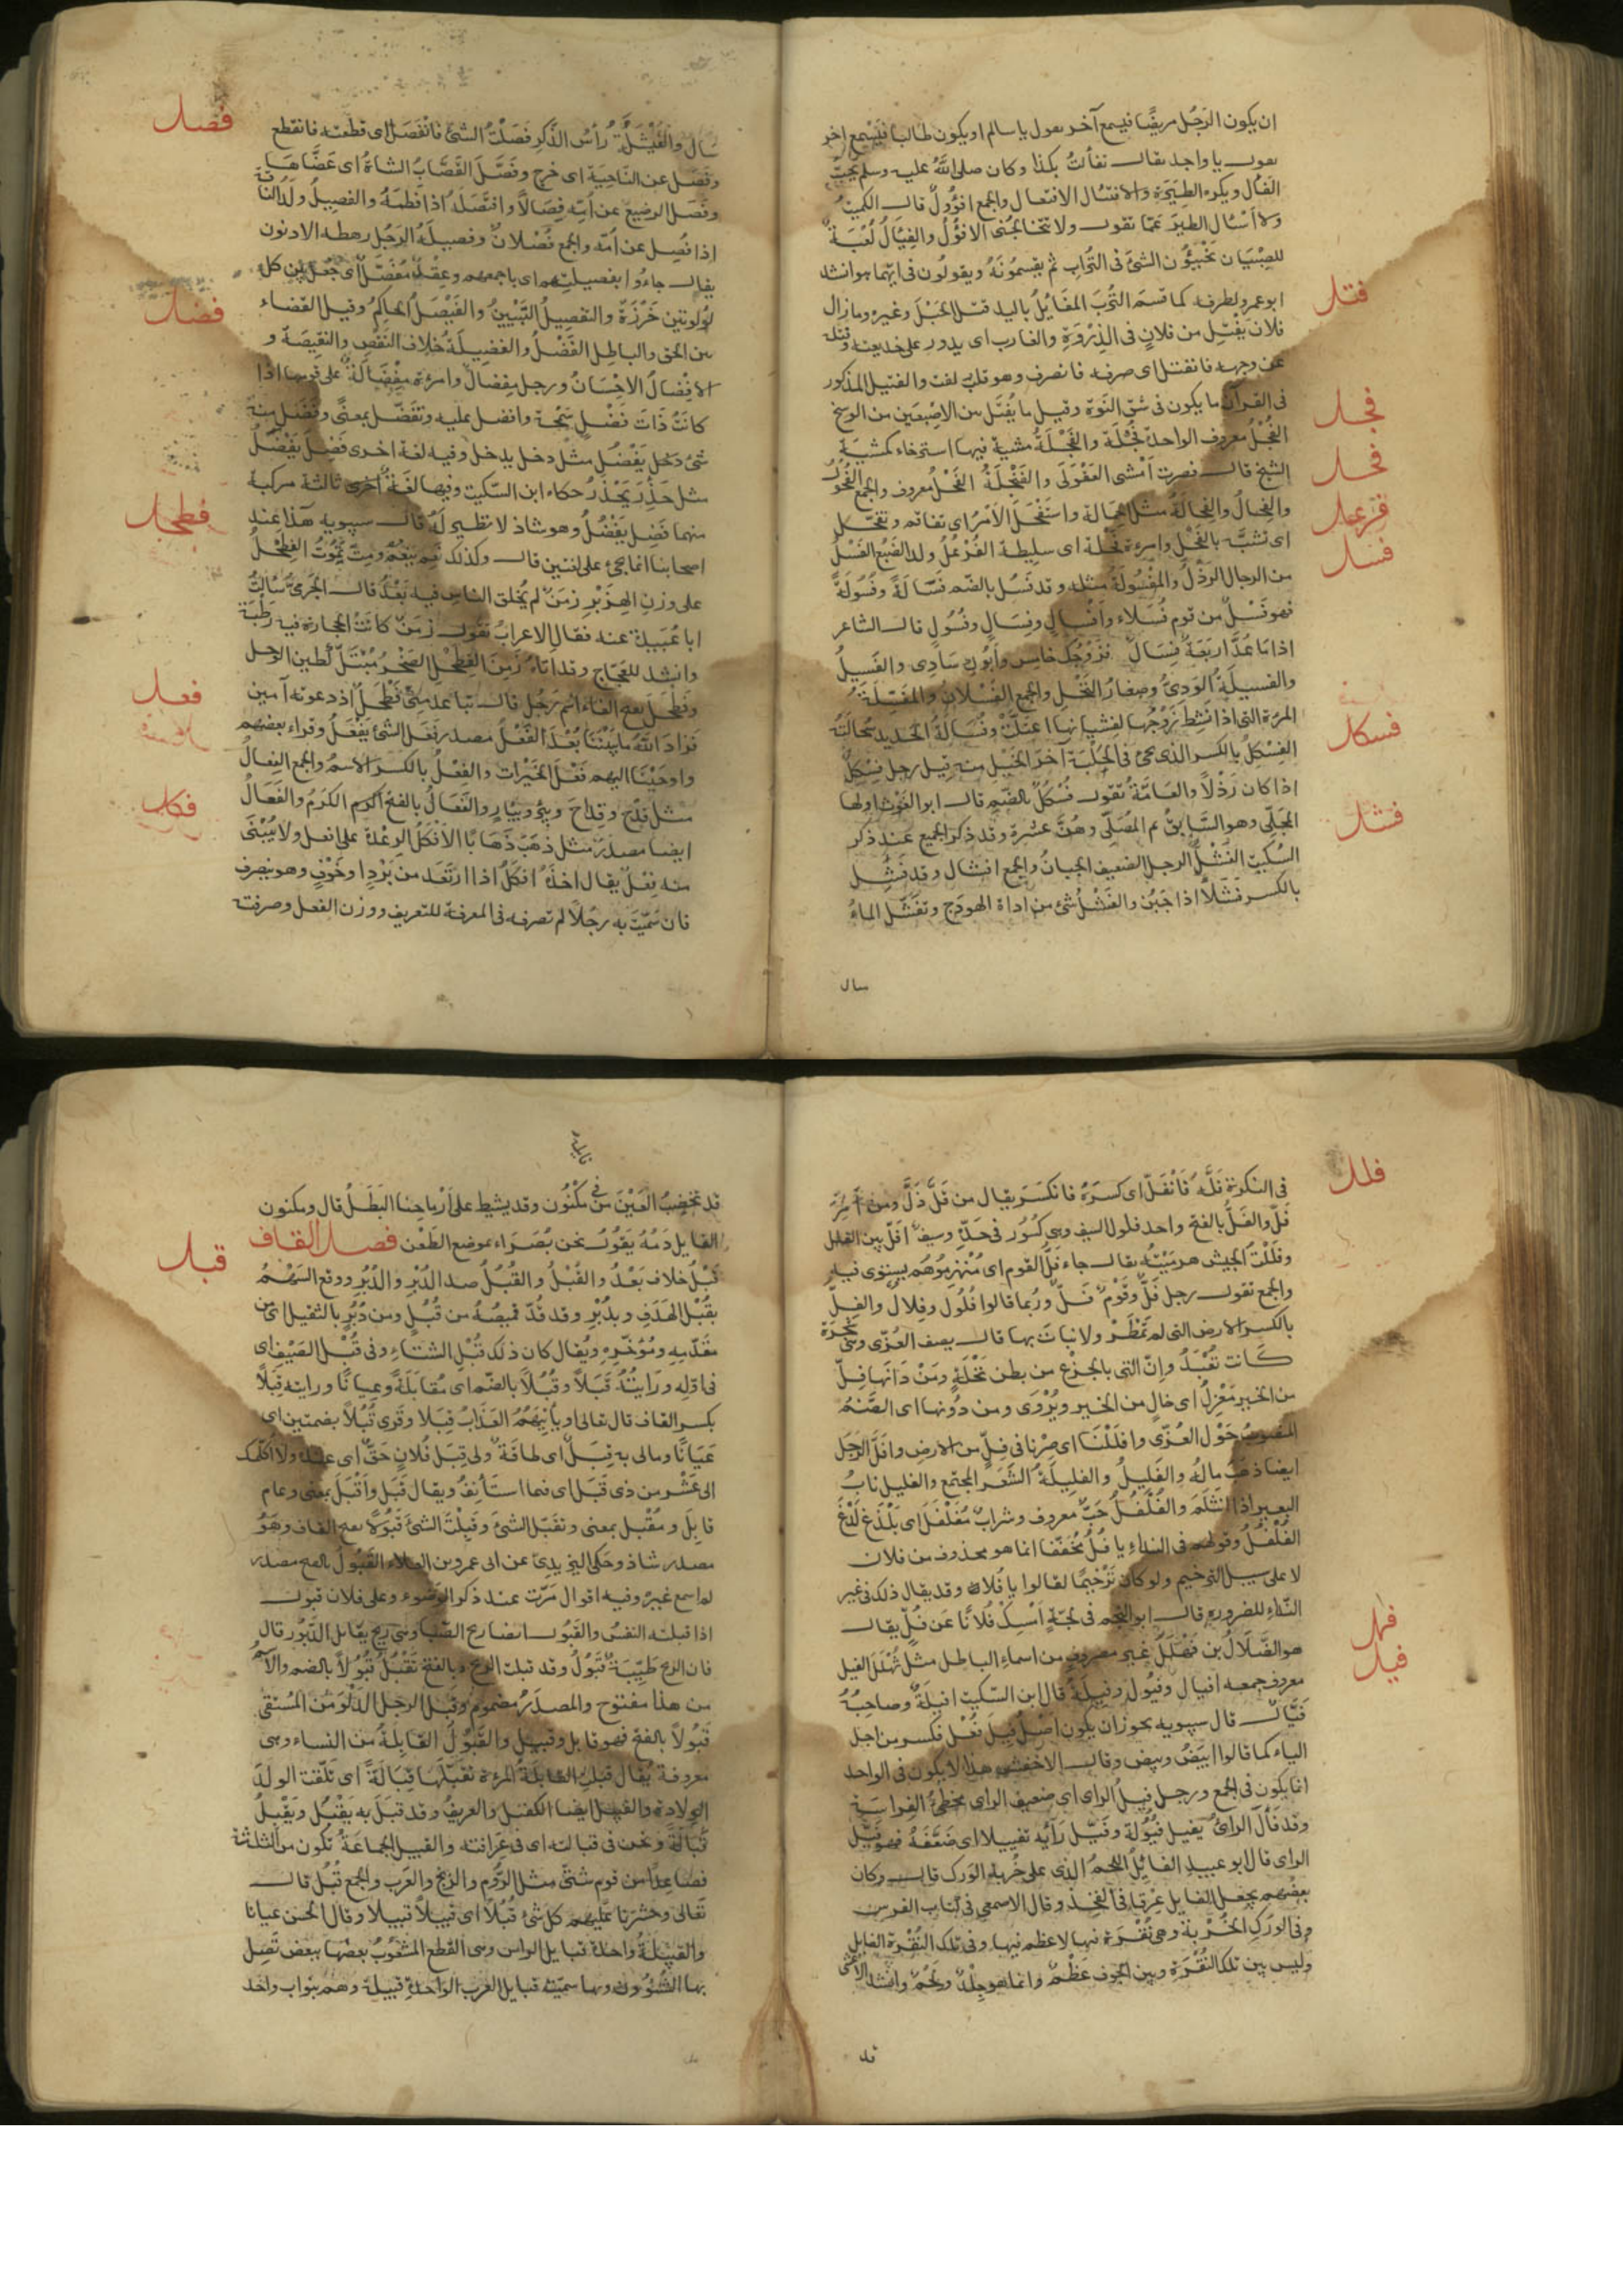 ان يكون الرَجُل مريضًا فيسمع آخر يقول يا سالم او يكون طالبا فَيَسْمع اخر
يقول يا واجد يقال تفأّلتُ بكذا وكان صلى اللهُ عليه وسلم يُحِبُّ
الفَأل ويكره الطِيَرَة والافتئال الافتعال والجمع افؤُولٌ قال الكميتُ
ولا أَسْأل الطير عمّا تقول ولا تتخالجُنى الافؤُلُ والفِيَّالُ لُعْبَةٌ
للصِبْيَان يَخْبَئُون الشئَ فى التُراب ثم يقسمُونَهُ ويقولُون فى ايّهما هو انشد
فتل
ابو عمرو لطرفه كما قسَمَ التُربَ المفَايِلُ باليد فتل الحَبْلَ وغيره وما زال
فلان يَفْتِل من فلانٍ فى الذِرْوَةِ والغارب اى يدور على خديعته وفتله
عن وجهه فانفتل اى صرفه فانصرف وهو قلب لفت والفتيل المذكور
فى القرآن ما يكون فى شقّ النَوَة وقيل ما يُفْتَل بين الاصْبَعَين من الوسخ
فجل
الفُجْلُ معروف الواحدة فُجْلَة والفَنْجَلَةُ مشية فيها استرخاء كمشية
فحل
الشيخ قال فصرت أمشى القَعْوَلَى والفَنْجَلَةُ الفَحْلُ معروف والجمع الفُحُولُ
والفِحالُ والفِحالَةُ مثل الجمالة واستَفْحَلَ الأمْرُ اى تفاقم وتفحَّل
فرعل
اى تشبَّه بالفَحْلِ وامرءة فَحْلَة اى سليطة الفُرْعُلُ ولد الضَبُع الفَسْلُ
فسل
من الرجال الرَذْلُ والمفْسُولَةُ مثله وقد فَسُل بالضّم فَسَالَةً وفُسُولَةً
فهو فَسْلٌ من قوم فُسَلاء وأَفْسالٍ وفِسَالٍ وفُسُولٍ قال الشاعر
اذا مَا عُدَّ اربَعَةٌ فِسَالٌ فزَوْجُكِ خامِس وأَبُوكِ سَادِى والفَسيلُ
والفسيلَةُ الوَدِىُّ وصغارُ النَخْلِ والجمع الفُسْلان والمُفَسِّلَةُ
المرءة التى اذا نَشِطَ زَوْجُها لغشيانها اعتلَّتْ وفُسَالَةُ الحديد سُحَالَتُهُ
فسكل
الفِسْكِلُ بالكسر الذى يجئ فى الحَلْبَة آخرَ الخَيْل منه قيل رجل فِسْكِلٌ
اذا كان رَذْلاً والعَامَّةُ تقول فُسْكُلٌ بالضّم قال ابو الغَوْث اولها
المُجَلِّى وهو السَّابِقُ ثم المُصَلِّى وهُنَّ عشرة وقد ذكر الجميع عند ذكر
فشل
السُكَيت الفَشْلُ الرجل الضعيف الجبانُ والجمع افشال وقد فَشِل
بالكسر فَشَلاً اذا جَبُنَ والفَشْلُ شئ من اداة الهودَج وتفَشَّل الماءُ
سال
فصل
سَال والفَيْشَلَةُ رأسُ الذَكَر فَصَلْتُ الشئَ فانفَصَل اى قطَعته فانقطع
وفَصَل عن النَاحِيَة اى خرج وفَصَّلَ القصَّابُ الشاةَ اى عَضَّاهَا
وفَصَل الرضيعَ عن أمِّه فِصَالاً وافتصَلَهُ اذا فطَمَهُ والفصِيلُ ولَدُ الناقة
اذا فُصِل عن أمّه والجمع فُصْلان وفصيلَة الرَجُل رهطه الادنون
يقال جاءوا بفصيلتهم اى باجمعهم وعِقْد مُفَصَّلٌ اى جُعل بين كل
فضل
لؤلوتين خَرْزَة والتفصِيلُ التَبْيِينُ والفَيْصَلُ الحاكِمُ وقيل القضاء
بين الحق والباطل الفَضْلُ والفضيلَةُ خلاف النَقْصِ والنقيصَة و
الافْضالُ الاحْسَانُ ورجل مِفضال وامرءة مِفْضَالَةٌ على قومها اذا
كانَتْ ذَاتَ فَضْلٍ سَمْحَة وافضل عليه وتفضّل بمعنًى وفَضَل منه
شئ دخل يَفْضُل مثل دخل يدخل وفيه لغة اخرى فَضِلَ يَفْضَلُ
مثل حَذِرَ يَحْذَرُ حكاه ابن السّكيت وفيها لغَةٌ اُخرى ثالثة مركبة
منهما فَضِل يَفْضُلُ وهو شاذ لا نظير لَهُ قال سيبويه هذا عند
فطحل
اصحابنا انما يجئ على لغتين قال وكذلك نَعِمَ يَنعُمُ ومِتَّ تَمُوتُ الفِطَحْلُ
على وزن الهِزَبْرِ زمَنٌ لم يُخلق الناس فيه بَعْدُ قال الجَرمىُّ سَأَلْتُ
ابا عُبَيدة عنه فقال الاعرابُ تقول زمَنٌ كانَتْ الحجارة فيه رَطْبَة
وانشد للعَجّاج وقد اتاهُ زَمَنَ الفِطَحْلِ الصَخْرُ مُبْتَلٌّ كطين الوحل
فعل
وفَطْحَل بفتح الفاء اسم رَجُل قال تباعد مِنّى فَطْحَلٌ اذ دعوته آمين
فزاد اللهُ مابَيْنَنَا بُعْدًا الفَعْلُ مصدر فَعَل الشئَ يَفْعَلُ وقراء بعضهم
واوحَيْنَا اليهم فَعْل الخَيْرات والفعْلُ بالكسر الاسْمُ والجمع الفِعالُ
فكل
مثل قِدْح وقِدَاح وبِئر وبِئارٍ والفَعَالُ بالفتح الكرم الكَرَمُ والفَعَالُ
ايضا مصدر مثل ذهَبَ ذَهَابًا الأفْكَلُ الرِعْدة على افعل ولا يُبْنَى
منه فِعْلٌ يقال اخذَهُ افْكَلٌ اذا ارتَعَد من بَرْدٍ او خَوْفٍ وهو ينصرف
فان سَمَّيْتَ به رجُلاً لم تصرفه فى المعرفة للتعريف ووزن الفعل وصرفته
فلل
فى النكرة فَلَّهُ فَانْفَلَّ اى كسرَهُ فانكسَرَ يقال من فَلَّ ذَلَّ ومن أمِرَ
فَلَّ والفَلُّ بالفتح واحد فلول السيف وهى كُسُور فى حَدِّه وسيفٌ افَلّ بين الفلل
وفلَلْتُ الجيش هزمتُه يقال جاء فَلُّ القوم اى مُنْهَزِمُوهُم يستوى فيه
والجمع تقول رجل فَلٌّ وقَوْم فَلٌّ ورُبما قالوا فُلُول وفِلالٌ والفِلُّ
بالكسر الارض التى لم تُمْطَرْ ولا نباتَ بها قال يصف العُزّى وهى شجَرَة
كَانت تُعْبَدُ وإنّ التى بالجِزْع من بطن نَخْلَةٍ ومَنْ دَانَها فِلٌّ
من الخيرِ مَعْزِلُ اى خالٍ من الخير ويُرْوَى ومن دُونها اى الصَّنَمُ
المنصوبُ حَوْل العُزّى وافلَلْنَا اى صِرْنا فى فِلٍّ من الارض وافَلَّ الرَجُل
ايضا ذهَبُ مالُهُ والفَلِيلُ والفلِيلَةُ الشَعَر المجتمع والفليل نابُ
البعير اذا انْثَلَم والفُلْفُلُ حَبٌّ معروف وشرابٌ مُفَلْفَل اى يَلْذَع لَذْعَ
الفُلْفُل وقولهم فى النداء يا فُلُ مُخَفّفا انما هو محذوف من فلان
لا على سبيل الترخيم ولو كان تَرْخيمًا لقالوا يا فُلا وقد يقال ذلك فى غير
النداء للضرورة قال ابو النجم فى لُجّةٍ أمْسِكْ فُلانًا عَن فُلٍ يقال
فهل
هو الضَلالُ بن فَهْلَلَ غير مصروف من اسماء الباطل مثل ثَهْلَلَ الفيل
فيل
معروف جمعه افيال وفُيُول وفِيَلَةٌ قال ابن السّكيت افيلَةٌ وصاحبُهُ
فَيّالٌ قال سيبويه يجوز ان يكون اصْلُ فِيل فُعْل فكسر من اجل
الياء كما قالوا ابيَضُ وبِيض وقال الاخفش هذا لا يكون فى الواحد
انما يكون فى الجمع ورجل فيلُ الراى اى ضعيف الراى مخطئُ الفِراسَة
وقد فَالَ الراىُ يفيل فُيُولَة وفَيَّل رَأيَه تفييلا اى ضَعَّفَهُ فهو فَيِّل
الراى قال ابو عبيد الفائِلُ اللحمُ الذى على خُربه الوَرك قال وكان
بعضهم يجعل الفايل عِرقا فى الفخِذ وقال الاصمعى فى كتاب الفرس
وفى الورك الخُرْبة وهى نُقْرَة فيها لا عظم فيها وفى تلك النُقْرة الفايل
وليس بين تلك النُقْرَة وبين الجوف عَظْمٌ وانما هو جلْدٌ ولحْمٌ وانشد الاعشى
قد
قد نخضِبُ العَيْرَ من مكْنُون فى وقد يشيط على أرْماحِنا البَطَلُ قال ومكنون
الفايل دَمُهُ يقول نحن بُصَرَاء بموضع الطَعْن فصل القاف
قبل
قَبْلُ خلاف بَعْدُ والقُبْلُ والقُبُلُ ضد الدُبْر والدُبُر ووقع السَهْمُ
بقُبْل الهَدَف وبدُبْره وقد قُدّ قميصُهُ من قُبُلٍ ومن دُبُرٍ بالتثقيل اى من
مقَدّمه ومُؤَخَّره ويُقال كان ذلك فى قُبْل الشتاء وفى قُبْل الصَيْف اى
فى اوّله ورَايتُهُ قَبَلاً وقُبُلاً بالضّم اى مُقابَلَةً وعِيانًا ورايته قِبَلاً
بكسر القاف قال تعالى او يأتيَهُم العَذابُ قِبَلا وقرى قُبُلاً بضمتين اى
عَيانًا ومالى به قِبَلٌ اى طاقَة ولى قِبَل فُلانٍ حَقٌّ اى عنده ولا اُكلّمك
الى عَشْر من ذى قَبَل اى فيما استَأنِفُ ويقال قَبَل وأقْبَل بمعنى وعام
قابِل ومُقْبل بمعنى وتقبّل الشئَ وقَبِلْتُ الشئَ قَبُولاً بفتح القاف وهُوَ
مصدر شاذ وحَكى اليزيدىّ عن ابى عمرو بن العلاء القَبُولُ بالفتح مصدر
لم اسمع غيرَهُ وفيه اقوال مَرّت عند ذكر الوضوء وعلى فلان قَبول
اذا قبلته النفسُ والقَبُول ايضا ريح الصَّبا وهى ريح يقابل الدَّبُور قال
فان الريح طيِّبةٌ قَبُولُ وقد قبلت الريح بالفتح تَقْبُلُ قُبُولاً بالضم والاسمُ
من هذا مفتوح والمصدَرُ مضموم وقَبِلَ الرجلُ الدَلْوَ مِن المُسْتقى
قَبُولاً بالفتح فهو قابل وقَبِيلٌ والقَبُولُ القَابِلَةُ من النساء وهى
معروفة يُقال قبلتِ القَابلةُ المرءة تقبَلها قِبَالَةً اى تلقّت الولَدَ
الولادة والقبيل ايضا الكفيل والعريفُ وقد قبَلَ به يَقْبُل ويَقْبِلُ
قَبَالَةً ونحن فى قبالته اى فى عرافته والقبيل الجماعَةُ تكون من الثلاثة
فصاعِدًا من قوم شَتَّى مثل الرُوم والزنج والعَرب والجمع قُبُل قال
تَعالى وحشَرنا عَلَيهم كل شئ قُبُلاً اى قَبِيلاً قَبِيلا وقال الحسن عيانا
والقبيلَةُ واحدة قبايل الراس وهى القطع المشعُوبُ بعضُها ببعض تَصِل
بها الشُؤون وبها سميت قبايل العَرب الواحدة قبيلة وهم بنو اب واحد